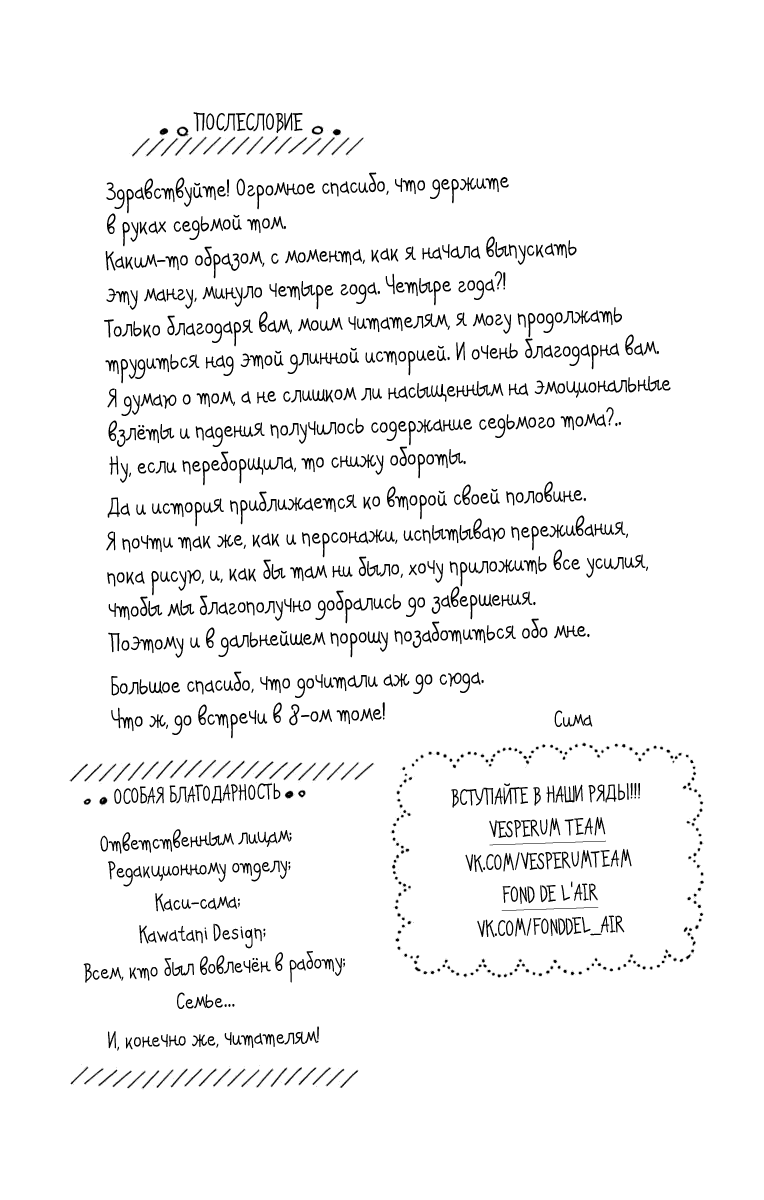 ПОСЛЕСЛОВИЕ
Здравствуйте! Огромное спасибо, что держите
в руках седьмой том.
Каким-то образом, с момента, как я начала выпускать
эту мангу, минуло четыре года. Четыре года?!
Только благодаря вам, моим читателям, я могу продолжать
трудиться над этой длинной историей. И очень благодарна вам.
Я думаю о том, а не слишком ли насыщенным на эмоциональные
взлёты и падения получилось содержание седьмого тома?..
Ну, если переборщила, то снижу обороты.
Да и история приближается ко второй своей половине.
Я почти так же, как и персонажи, испытываю переживания,
пока рисую, и, как бы там ни было, хочу приложить все усилия,
чтобы мы благополучно добрались до завершения.
Поэтому и в дальнейшем порошу позаботиться обо мне.
Большое спасибо, что дочитали аж до сюда.
Что ж, до встречи в 8-ом томе!
Сима
ОСОБАЯ БЛАГОДАРНОСТЬ
Ответственным лицам;
Редакционному отделу;
Каси-сама;
Kawatani Design;
Всем, кто был вовлечён в работу;
Семье...
И, конечно же, читателям!
ВСТУПАЙТЕ В НАШИ РЯДЫ!!!
VESPERUM TEAM
VK.COM/VESPERUMTEAM
FOND DE L'AIR
VK.COM/FONDDEL_AIR